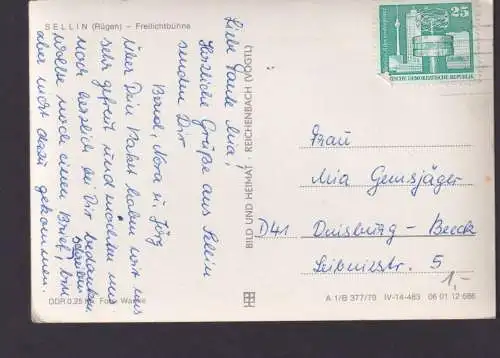 SELLIN (Rügen) – Freilichtbühne
Liebe Tante Mia!
Herzliche Grüße aus Sellin
senden Dir
Bernd, Nora u. Jörg
Über Dein Paket haben wir uns
sehr gefreut und möchten uns
noch herzlich bei Dir bedanken
wollte noch einen Brief schreiben bin
aber nicht dazu gekommen.
DDR 0,25 M Foto
BILD UND HEIMAT · REICHENBACH (VOGTL)
25
DEUTSCHE DEMOKRATISCHE REPUBLIK
Frau
Mia Gemsjäger
D41 Duisburg-Beeck
Leibnizstr. 5
1,-
A 1/B 377/79 IV-14-483 06 01 12 686